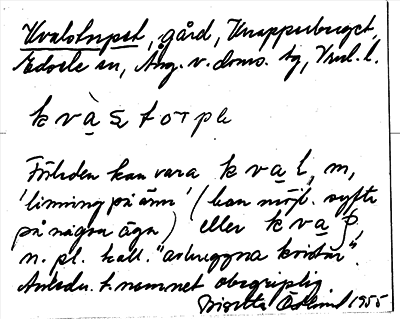 Kvalstorpet, gård, Knapperberget,
sn, Älg. v. doms. tg, Vrml. l.
k v à s t o r p e
Förleden kan vara k v a l, m,
'linning på ärm' (kan möjl. syfta
på någon äga) eller k v a
n. pl. koll. "avhuggna kvistar".
Anledn. t. namnet obegriplig.
Birgitta 1955